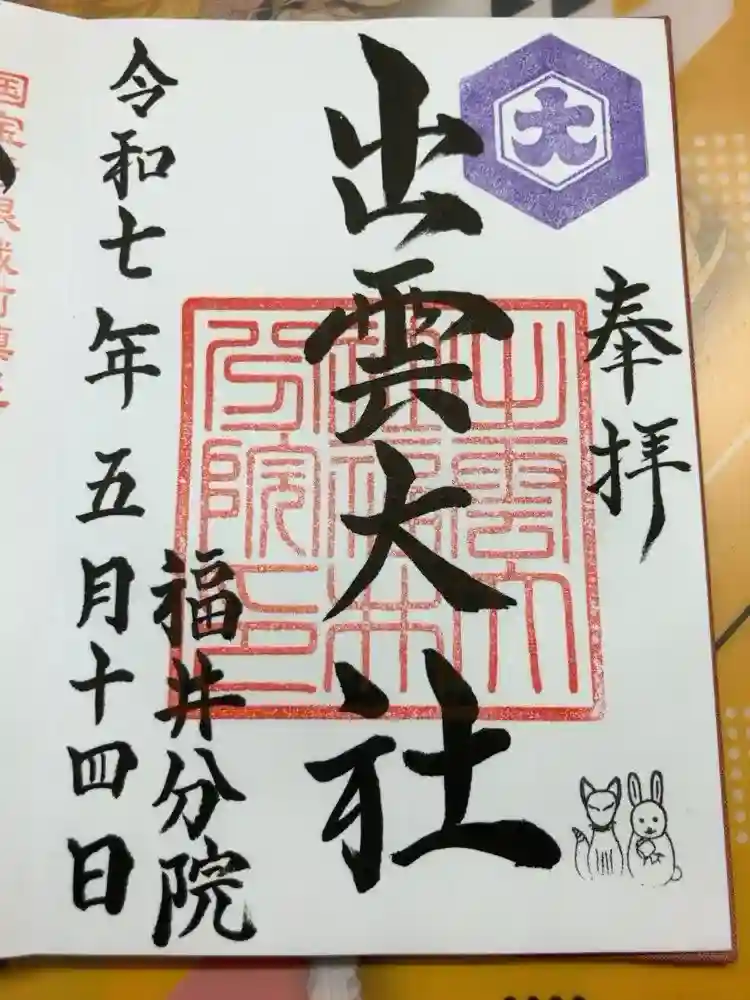 奉拝
大
出雲大社
出雲大
社福井
分院印
福井分院
令和七年五月十四日
国宝